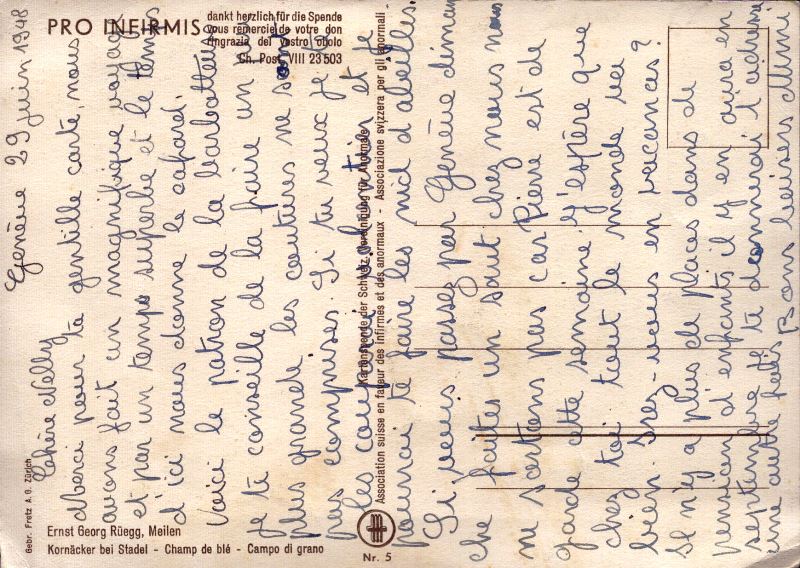 PRO INFIRMIS
dankt herzlich für die Spende
vous remercie de votre don
ringrazia del vostro obolo
Ch. Post. VIII 23 503
Genève 29 juin 1948
Chère Nelly
Merci pour ta gentille carte, nous
avons fait un magnifique voyage
et par un temps superbe et le temps
d'ici nous donne le cafard.
Voici le patron de la barboteuse
je te conseille de la faire un peu
plus grande les coutures ne sont
pas comprises. Si tu veux je te
les couperai et bâtirai et te
pourrai te faire les nid d'abeilles.
Si vous passez par Genève diman
che faites un saut chez nous nous
ne sortons pas car Pierre est de
garde cette semaine. J'espère que
chez toi tout le monde va
bien. Irez-vous en vacances?
Je n'y a plus de places dans de
pension d'enfants il y en aura en
septembre je te donnerai l'adresse
une autre fois Bons baisers Mimi
Kartenspende der Schweiz. Vereinigung für Anormale
Association suisse en faveur des infirmes et des anormaux - Associazione svizzera per gli anormali
Gebr. Fretz A.G. Zürich
Ernst Georg Rüegg, Meilen
Kornäcker bei Stadel - Champ de blé - Campo di grano
Nr. 5